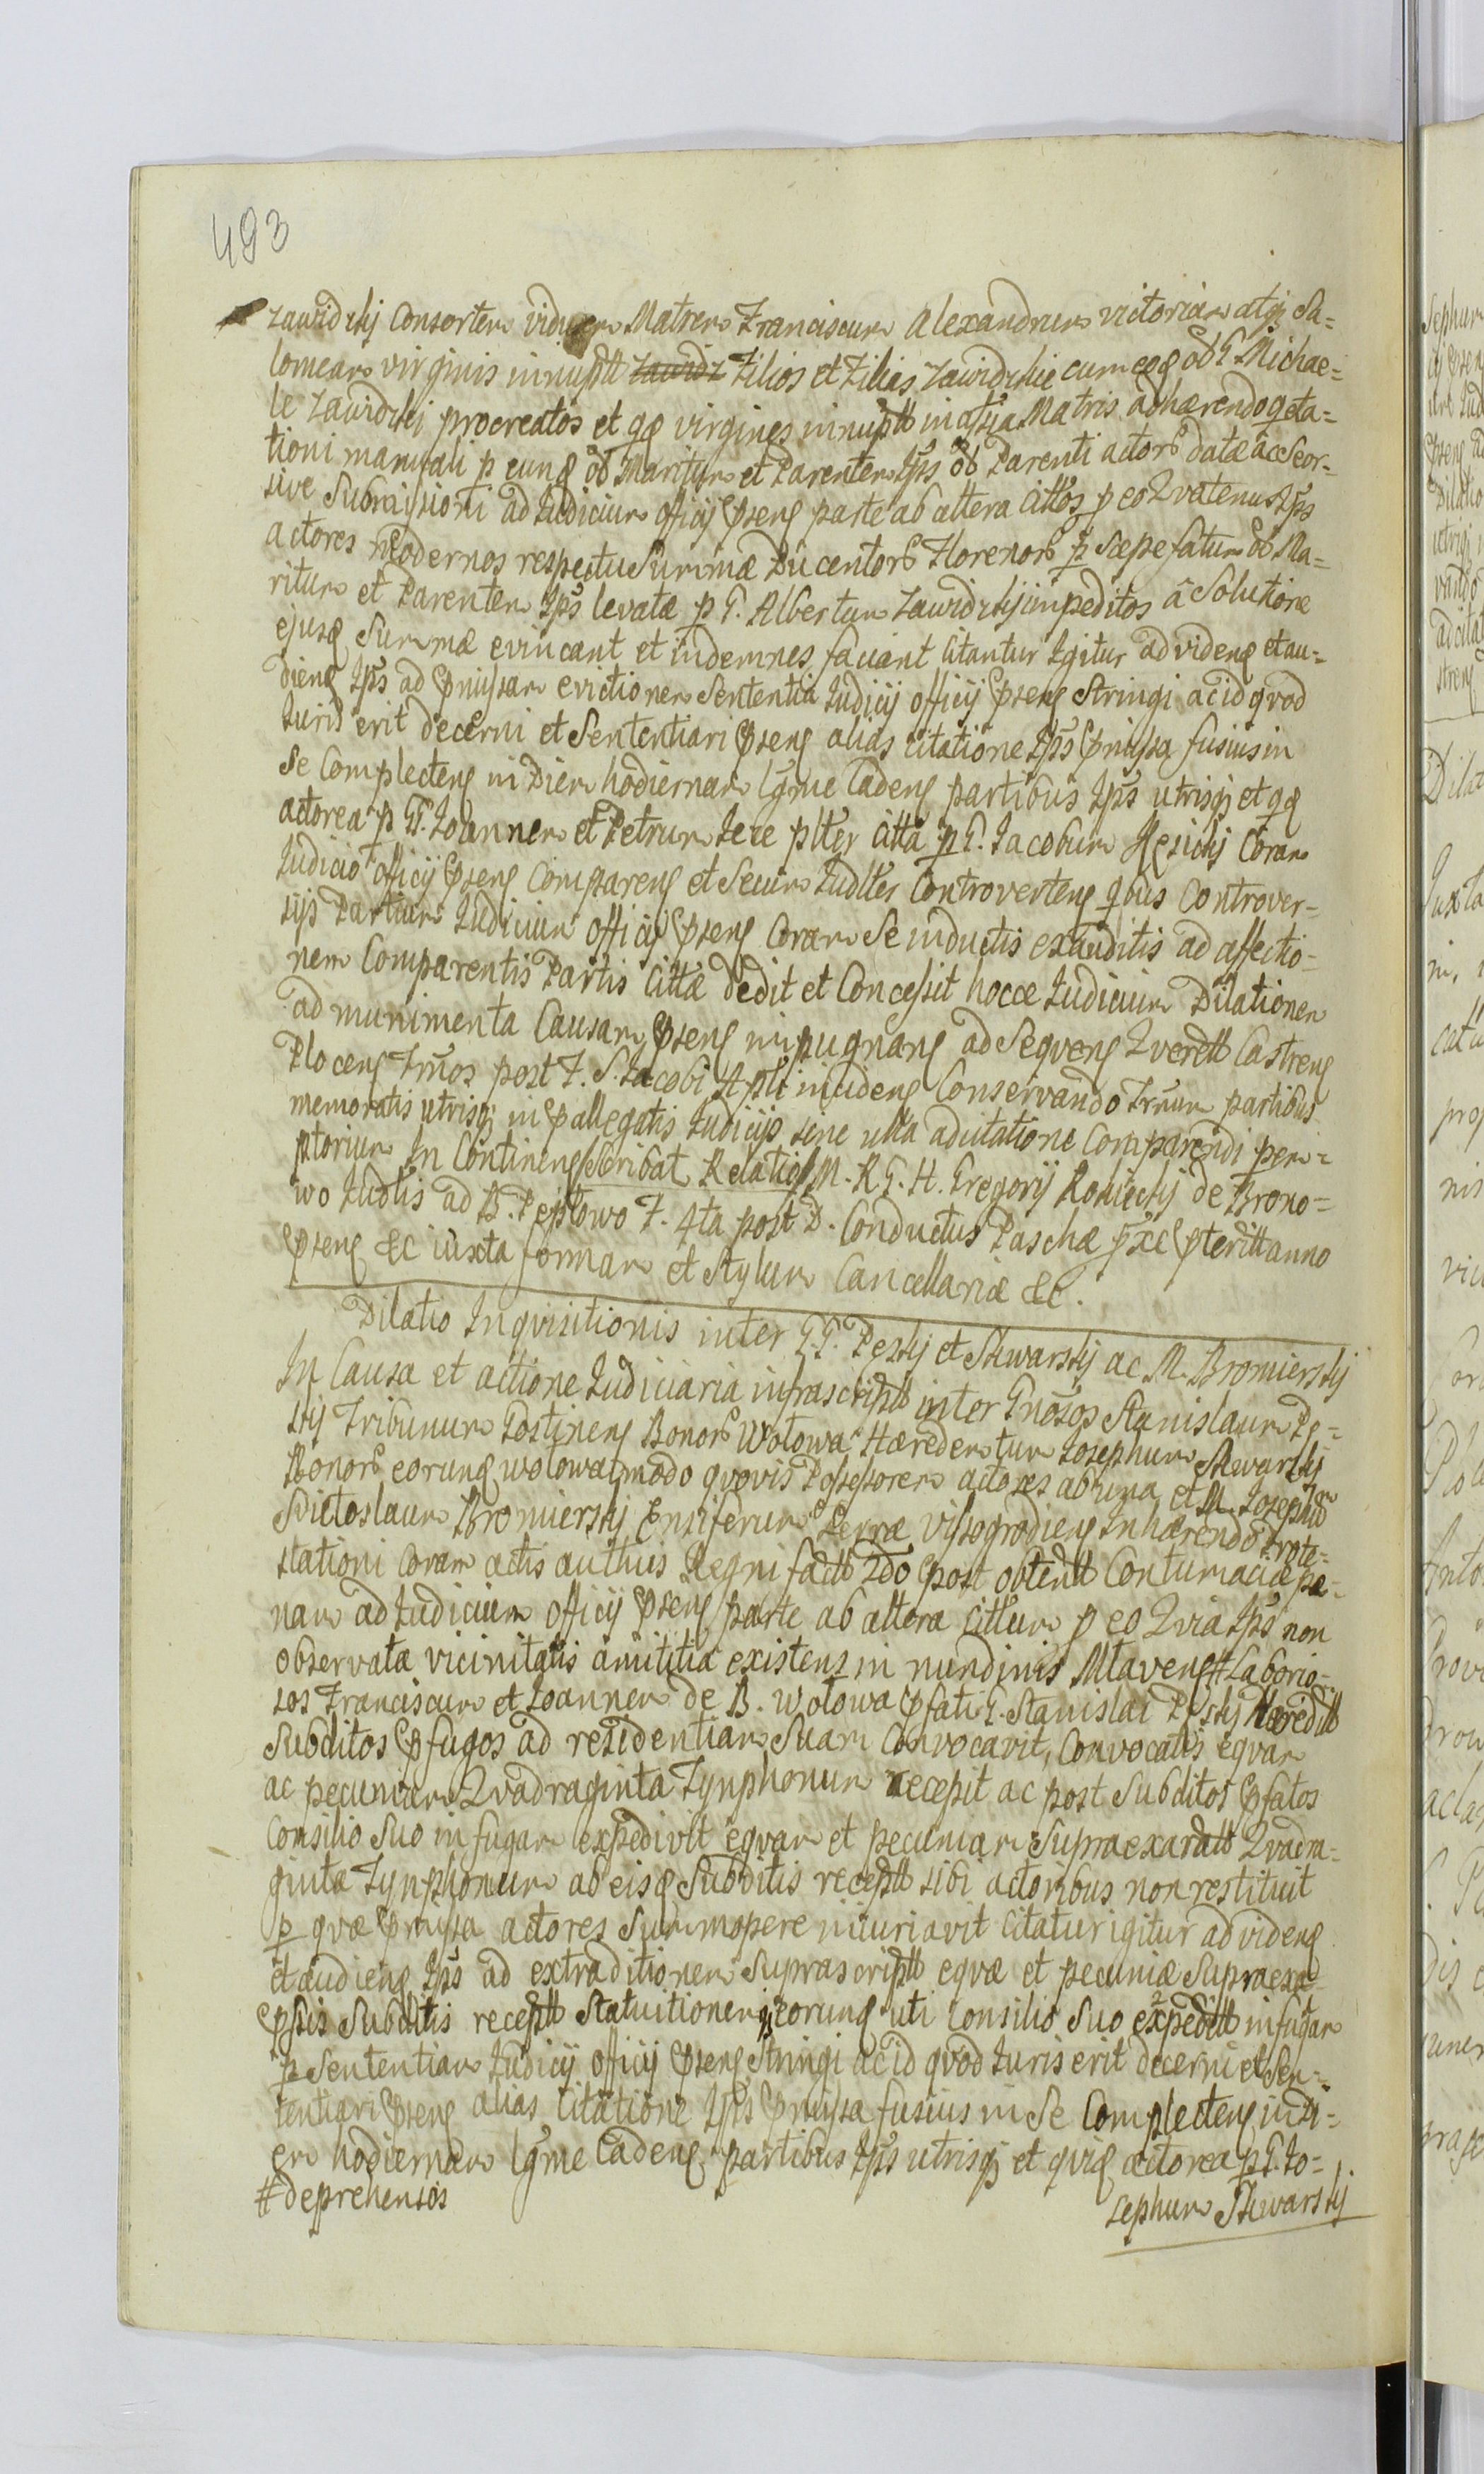 493
Zawidzkij Consortem viduam Matrem Franciscum Alexandrum victoriam atq; Sa=
lomeam virginis innuptt Zawidz Filios et Filias Zawidzkie cum eoq ob G Michae=
le Zawidzki procreatos et qq virgines innuptt in assya Matris adhærendo qeta=
tioni manuali p eunq ob Maritum et Parentem Jps ob Parenti actorb datæ ac Seor=
sive Submissioni ad Judicium officij pseng parte ab altera Cittos p eo Qvatenus Jps
actores hodernos respectu Summæ Ducentorb Florenorb p Sæpefatum ob Ma=
ritum et Parentem Jps levatæ p G. Albertum Zawidzkij impeditos â Solutione
ejusq Summæ evincant et indemnes faciant Citantur Igitur ad videnq et au=
dienq Jps ad pmissam evictionem Sententia Judicij officij pseng Stringi ac id qvod
Juris erit decerni et Sententiari pseng alias citatione Jps pmissa fusius in
Se Complecteng in Diem hodiernam lgme Cadeng partibus Jps utrisq; et qq
actorea p GG. Joannem et Petrum Jeze plter Citta p G. Jacobum Coram
Judicio officij pseng Compareng et Secum Judlter Controverteng qbus Controver=
sijs Partium Judicium officij pseng Coram Se inductis exauditis ad affectio=
nem Comparentis Partis Cittæ dedit et Concessit hocce Judicium Dilationem
ad munimenta Causam pseng impugnang ad Seqveng Qverett Castreng
Ploceng Trmos post F. S. Jacobi Apli incideng Conservando Trmum partibus
memoratis utrisq; in pallegatis Judicijs sine ulla adcitatione Comparendi perem=
ptorium In Contineng Scribat Relatio M. R G. H. Gregorij Rokickij de Brono=
wo Judlis ad B. Peplowo F. 4ta post D. Conductus Paschæ pxe pteritt anno
pseng &c iuxta formam et Stylum Cancellariæ &c.
Dilatio Inqvisitionis inter G.G. Peskij et Skwarskij ac M. Bromierskij
In Causa et actione Judiciaria infrascriptt inter Gnosos Stanislaum Pę=
skij Tribunum Gostineng Bonorb Wołowa Hæredem tum Josephum Skwarskij
Bonorb eorunq wołowa modo qvovis Possessorem actores ab una et M. Josephum
Swictoslaum Bromierskij Ensiferum Terræ Vissogrodieng Inhærendo Prote=
stationi Coram actis authuis Regni factt 2do post obtentt Contumaciæ pæ=
nam ad Judicium officij pseng parte ab altera Cittum p eo Qvia Jps non
observata vicinitatis amititia existens in nundinis Mlaveng # Laborio=
sos Franciscum et Joannem de B. Wołowa pfati G. Stanislai Pęskij Hæreditt
Subditos pfugos ad residentiam Suam Convocavit, Convocatis eqvam
ac pecuniam Qvadraginta Tynphonum recepit ac post Subditos pfatos
Consilio Suo in fugam expedivit eqvam et pecuniam Supraexaratt Qvadra=
ginta Tynphonum ab eisq Subditis receptt sibi actoribus non restituit
p qvæ pmissa actores Summopere iniuriavit Citatur igitur ad videnq
et audienq Jps ad extraditionem Suprascriptt eqvæ et pecuniæ Supraexa
psis Subditis receptt Statuitionem eorunq uti Consilio Suo expeditt in fugam
p Sententiam Judicij officij pseng Stringi ac id qvod Juris erit decerni et Sen=
tentiari pseng alias Citatione Jps pmissa fusius in Se Complecteng in Di=
em hodiernam lgme Cadeng partibus Jps utrisq; et qviq actorea p G. Jo=
# deprehensos
sephum Skwarskij